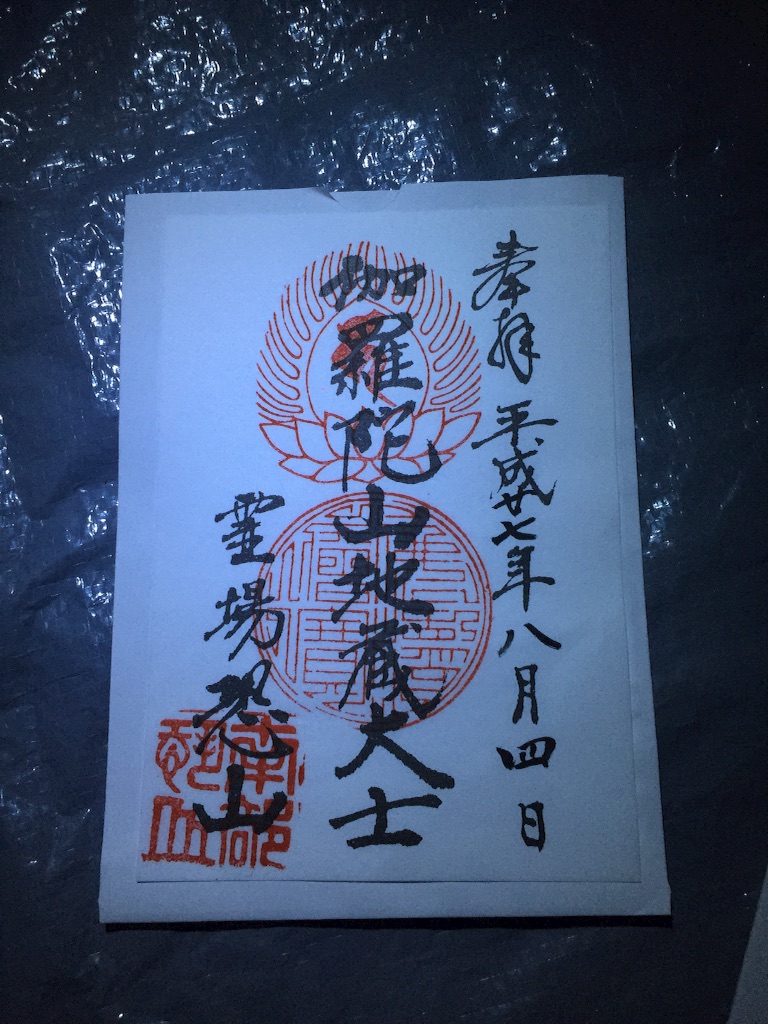 奉拜 平成廿七年八月四日
伽羅陀山地蔵大士
霊場恐山
南部
恐山